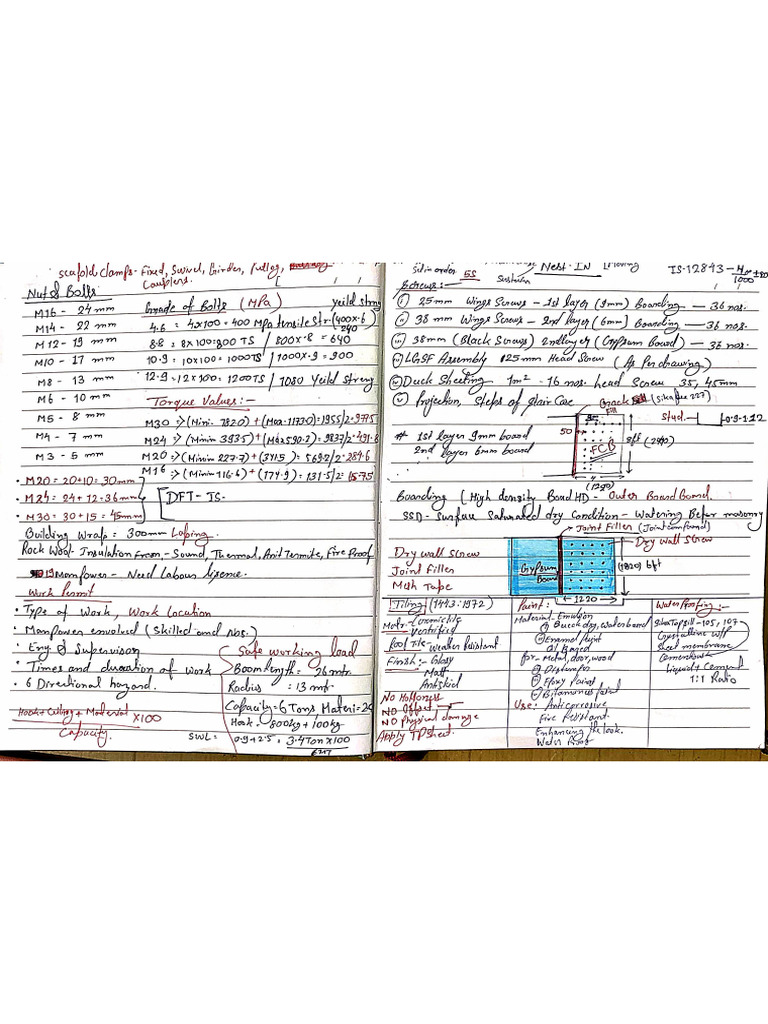 Scafold Clamps - Fixed, Swivel, Girder, Putlog,
Couplers.
Nut & Bolts
Grade of Bolts (MPa) Yeild streng
M16 - 24 mm
M14 - 22 mm 4.6 = 4x100 = 400 MPa tensile Str (400x.6) 240
M12 - 19 mm 8.8 = 8x100 = 800 TS / 800x.8 = 640
M10 - 17 mm 10.9 = 10x100 = 1000 TS / 1000x.9 = 900
M8 - 13 mm 12.9 = 12x100 = 1200 TS / 1080 Yeild streng
M6 - 10 mm Torque Values:-
M5 - 8 mm M30 => (Mini. 782.0) + (Max. 1173.0) = 1955/2 = 977.5
M4 - 7 mm M24 => (Minim 393.5) + (Max 590.2) = 983.7/2 = 491.8
M3 - 5 mm M20 => (Minim 227.7) + (341.5) = 569.2/2 = 284.6
M16 => (Minim 116.6) + (174.9) = 131.5/2 = 15.75
• M20 = 20+10 = 30mm
• M24 = 24+12 = 36mm DFT - IS-
• M30 = 30+15 = 45mm
Building Wrap = 300mm Laping
Rock Wool Insulation From - Sound, Thermal, Anti Termite, Fire Proof
19 Manpower - Need Labour lisence.
Work Permit
• Type of Work, Work Location
• Manpower envolved (Skilled and Nos.)
• Eng & Supervision
• Times and duration of work
• 6 Directional hazard.
Safe working load
Boom length = 26 mtr.
Radius : 13 mtr
Capacity = 6 Tons, Materi = 2
Hook - 800kg + 100kg
SWL = 0.9+2.5 = 3.4 Ton x 100
Hook + Culling + Material x100
Capacity.
Set in order 5S Sustain Nest-IN IS-12843 - H/1000
Screws:-
(i) 25mm Wings Screws - 1st layer (9mm) Boarding - 36 nos.
38 mm Wings Screws - 2nd layer (6mm) Boarding - 36 nos
38mm (Black Screws) 2nd layer (Gypsum Board) - 36 nos
LGSF Assembly 25mm Head Screw (As Per drawing)
Duck Sheeting 1m² - 16 nos. head Screw 35, 45mm
Projection, Steps of Stair Case
Crack (Sikaflex 227)
Stud. 0.9-1.12
50
FCB
8ft (2440)
(1220)
# 1st layer 9mm board
2nd layer 6mm board
Boarding (High density Board HD - Outer Board Board.
SSD - Surface Saturated dry Condition - Watering Befor masonry
Joint Filler (Joint compound)
Dry wall Screw
Dry wall Screw
Joint Filler
Mesh Tape
Gypsum
Board
(1820) 6ft
1220
Tiling (1443:1972)
Matr - Ceramic tile
Vertrified
Roof Tile - Weather Resistant
Finish:- Glosy
Matt
Antiskid
NO Hollowness
NO Offset
NO Physical damage
Apply TP Sheet.
Paint:
Material - Emulsion
Quick dry, waterboard
Enamel Paint
Oil Based
for - Metal, door, wood
Distemper
Epoxy Paint
Bitumenous Paint
Use: Anticorrosive
Fire Resistant.
Enhancing the look.
Water Proof
Water Proofing:-
105, 107
Crystalline W/P
Sheet membrane
Cementious
Liquid + Cement
1:1 Ratio